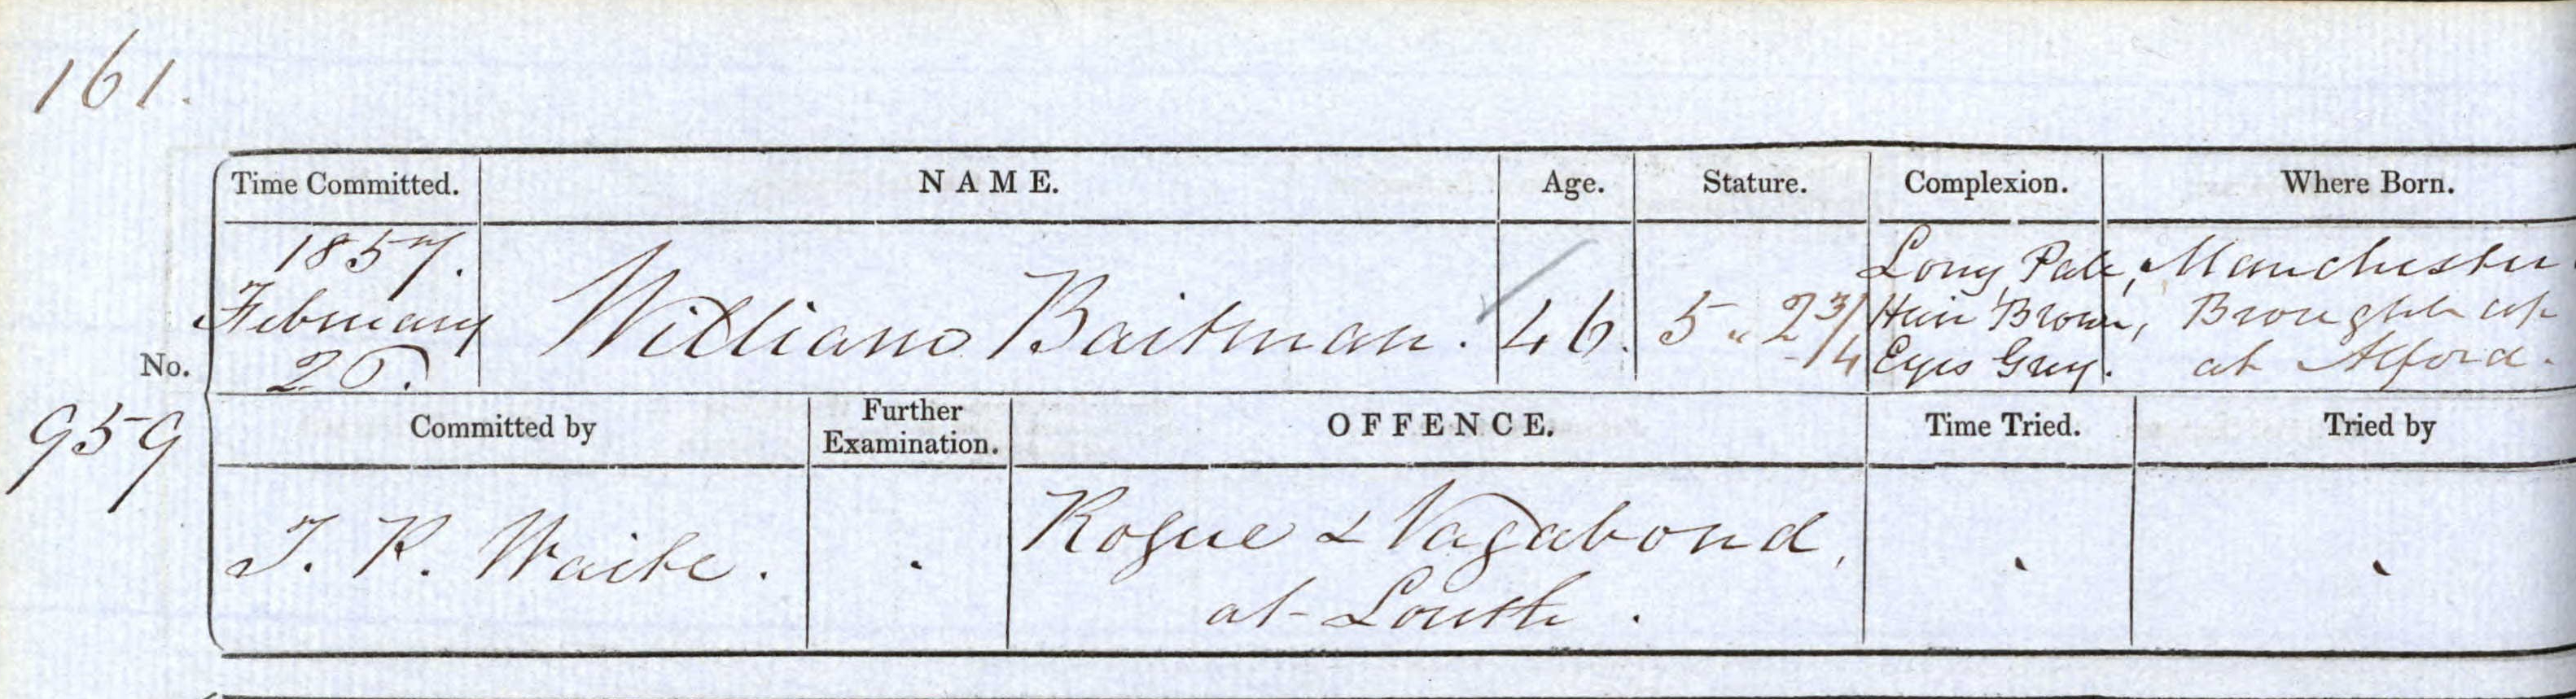 161.
Time Committed. NAME. Age. Stature. Complexion. Where Born.
1857. Long, Pale, Manchester
February William Baitman. 46. 5 " 2 3/4 Hair Brown, Brought up
No. 26. Eyes Grey. at Alford.
959 Committed by Further Examination. OFFENCE. Time Tried. Tried by
T. R. Waite. . Rogue & Vagabond, . .
at Louth.